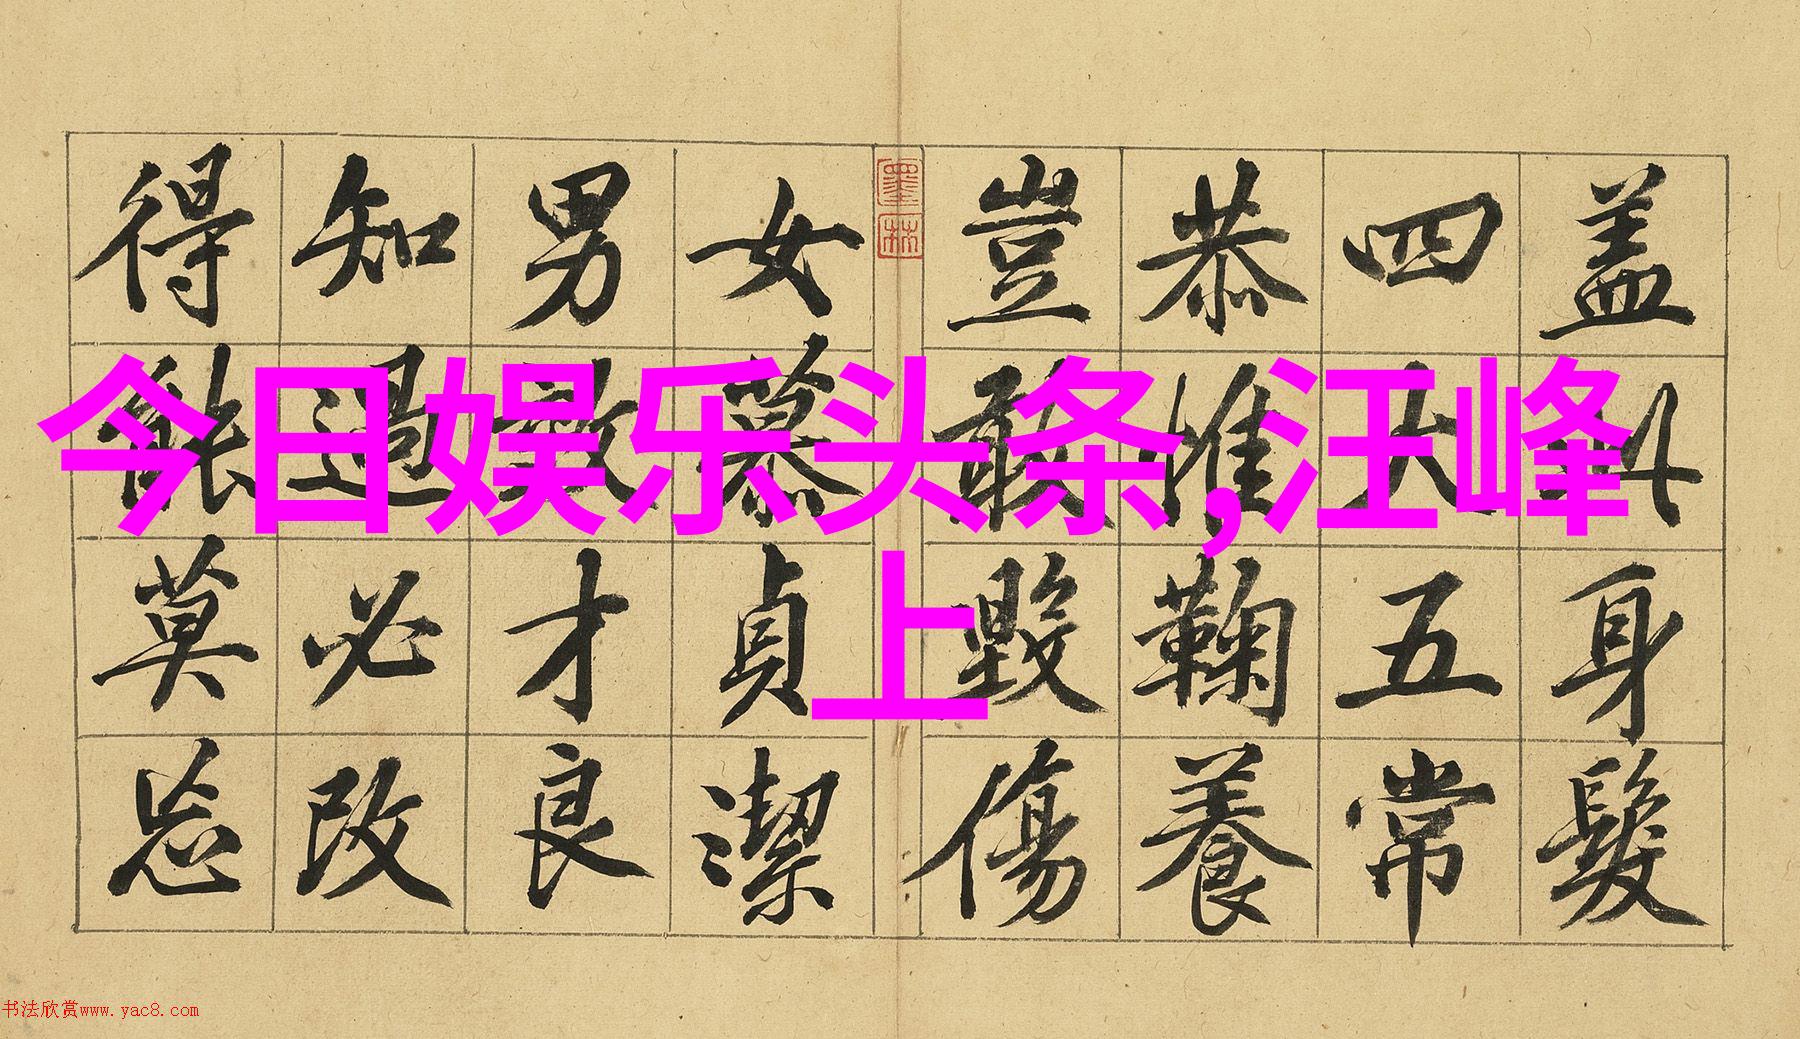 今日娱乐头条,汪峰
上
盖此身髮
四大五常
恭惟鞠養
豈敢毀傷
墨林
女慕貞潔
男效才良
知過必改
得能莫忘
书法欣赏www.yac8.com